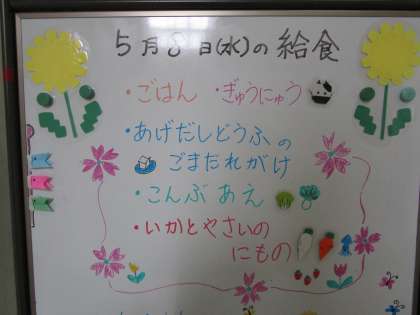 5月8日(水)の給食
・ごはん ・ぎゅうにゅう
・あげだしどうふの
ごまだれがけ
・こんぶあえ
・いかとやさいの
にもの